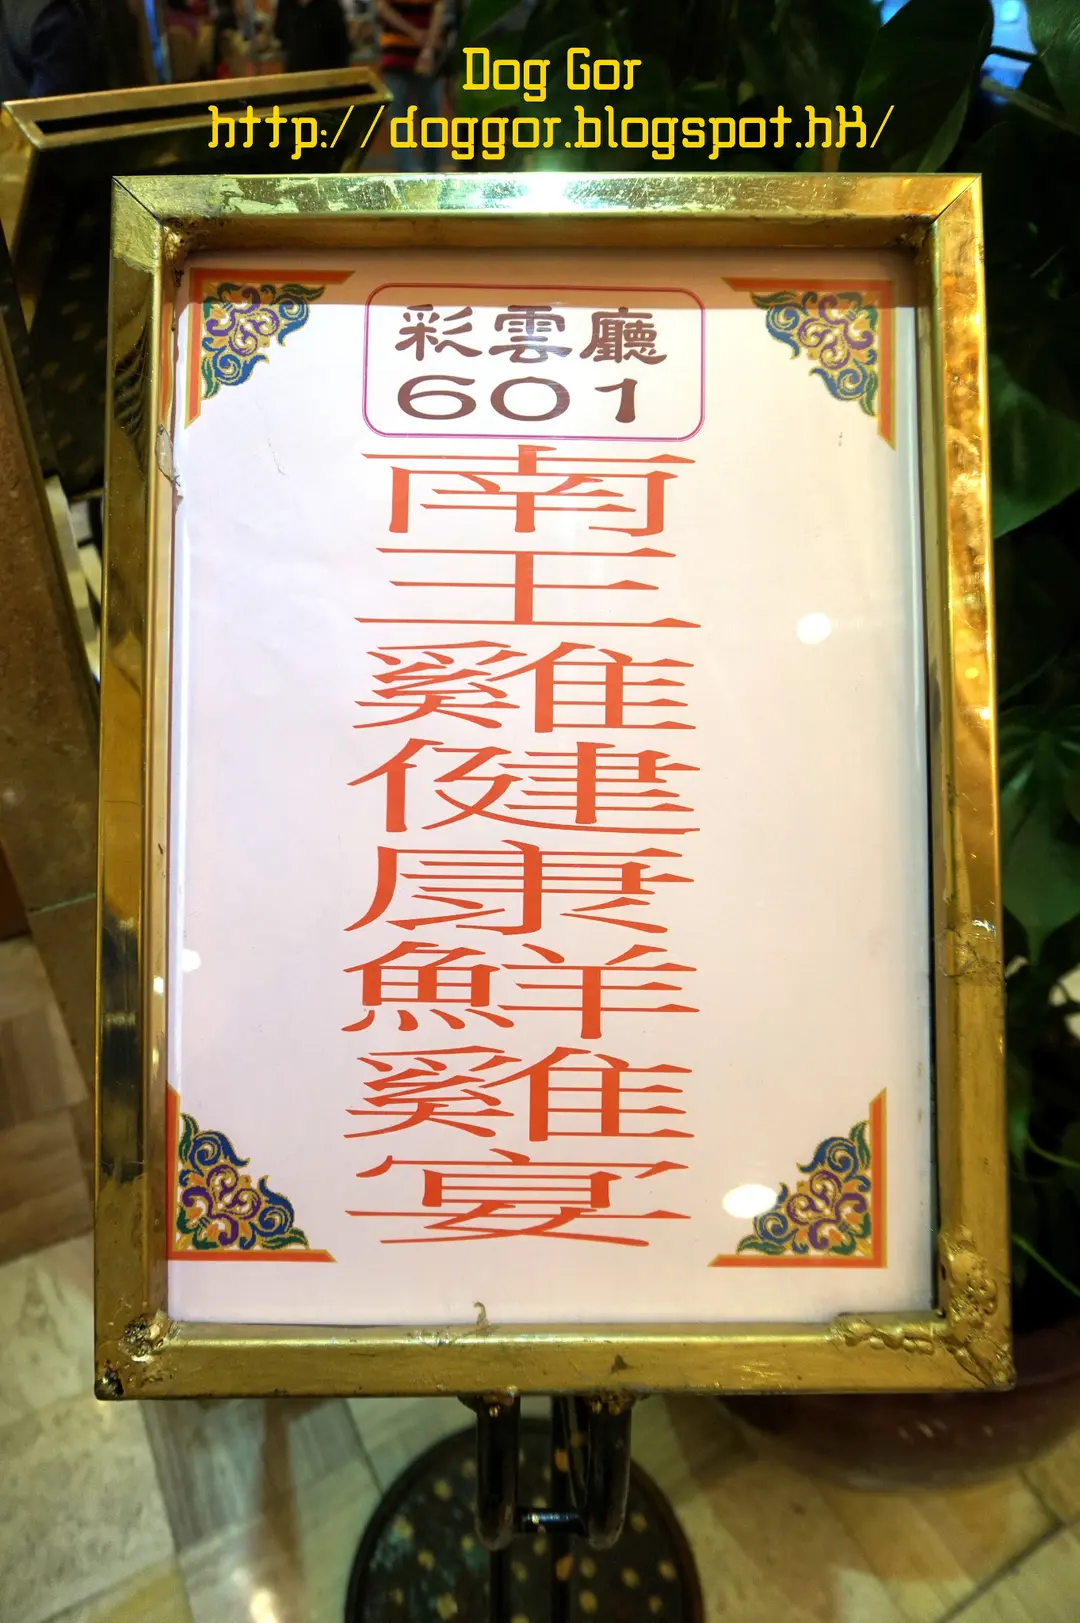 Dog Gor
http://doggor.blogspot.hk/
彩雲廳
601
南王雞健康鮮雞宴